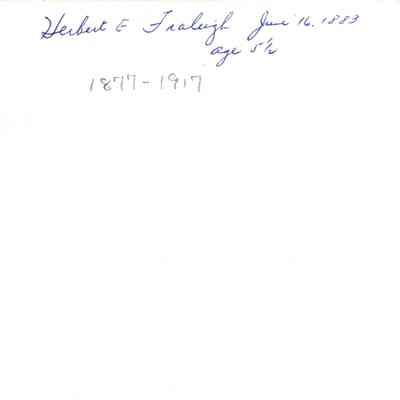 Herbert E Fraleigh June 16, 1883
age 5 1/2
1877-1917